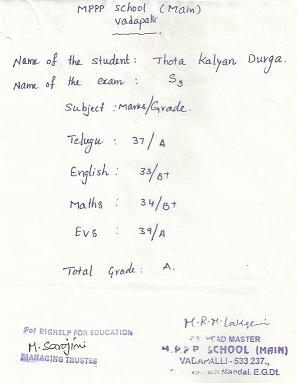 MPPP School (Main)
Vadapalli
Name of the student: Thota Kalyan Durga.
Name of the exam : S3
Subject : Marks/Grade.
Telugu : 37/A
English : 33/B+
Maths : 34/B+
EVS : 39/A
Total Grade : A.
For BIGHELP FOR EDUCATION
M. Sarojini
MANAGING TRUSTEE
HEAD MASTER
M.P.P.P SCHOOL (MAIN)
VADAPALLI - 533 237.,
Mandal. E.G.Dt.